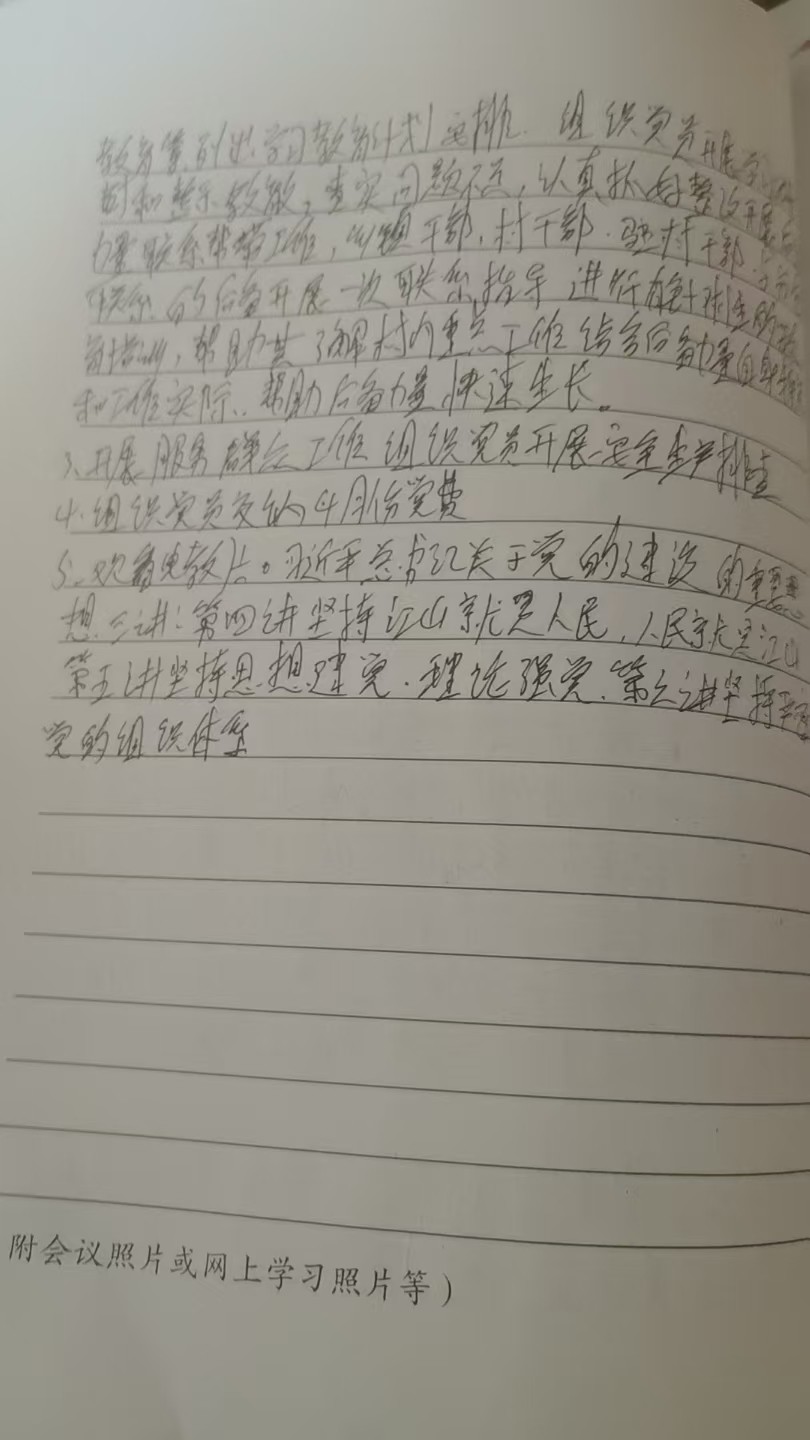 教育 列出学习教育计划安排. 组织党员开展学
和警示教, 查实问题不足, 认真抓好整改开展
力量联系帮带工作, 乡镇干部, 村干部. 驻村干部
联系 的后备开展一次联系指导 进行有针对性的
, 帮助其了解村内重点工作结合后备力量自身
和工作实际. 帮助后备力量快速生长。
3、开展服务群众工作 组织党员开展安全生产排查
4. 组织党员交纳4月份党费
5. 观看电教片。习近平总书记关于党的建设的重要思
想 三讲: 第四讲坚持江山就是人民, 人民就是江山
第五讲坚持思想建党. 理论强党. 第六讲坚持严密
党的组织体系
附会议照片或网上学习照片等)